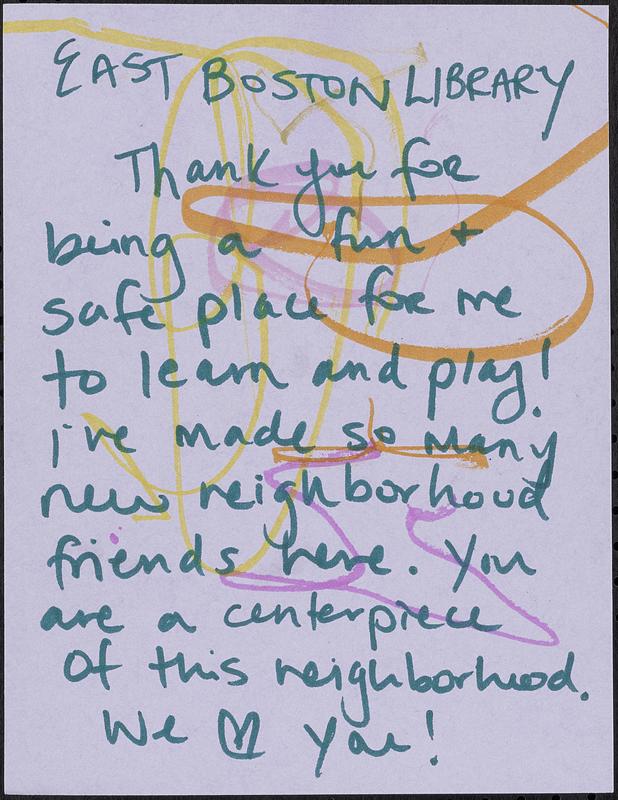 EAST BOSTON LIBRARY
Thank you for
being a fun +
safe place for me
to learn and play!
i've made so many
new neighborhood
friends here. You
are a centerpiece
of this neighborhood.
We ♡ you!